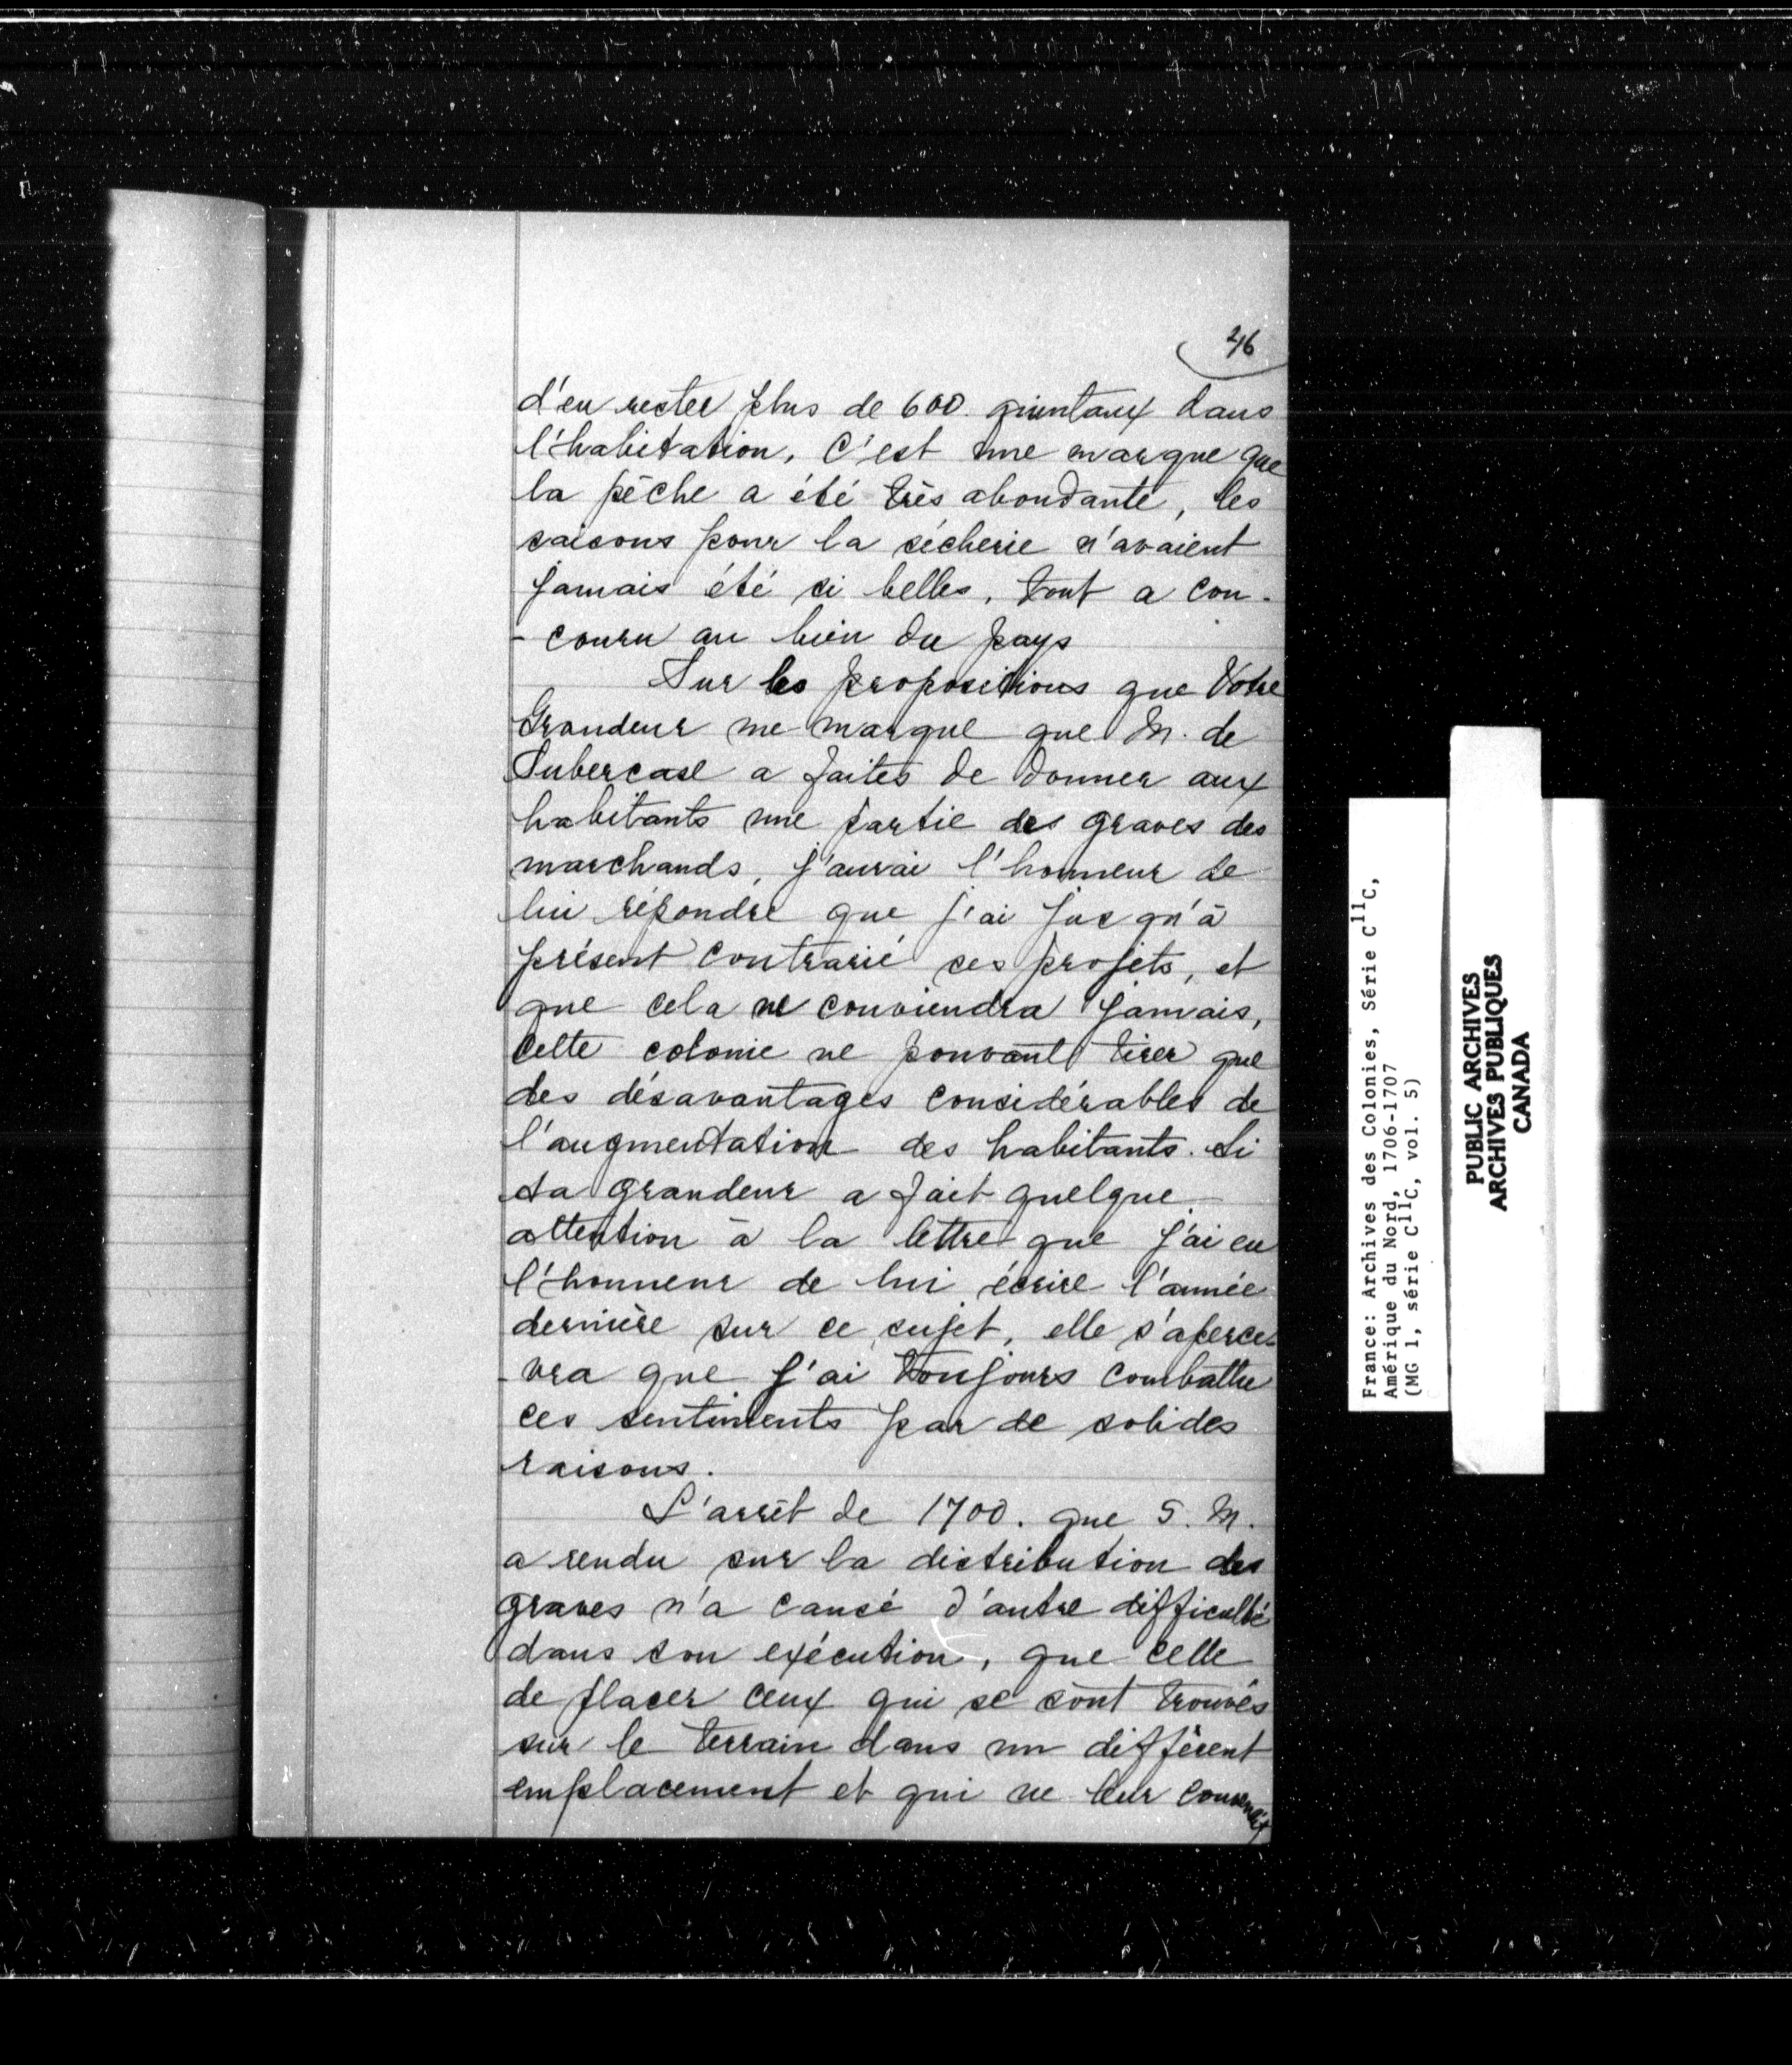 46
d'en rester plus de 600. quintaux dans
l'habitation. C'est une marque que
la pêche a été très abondante, les
saisons pour la sécherie n'avaient
jamais été si belles, tout a con-
- couru au bien du pays
Sur les propositions que Votre
Grandeur me marque que M. de
Subercase a faites de donner aux
habitants une partie des graves des
marchands, j'aurai l'honneur de
lui répondre que j'ai jusqu'à
présent contrarié ses projets, et
que cela ne conviendra jamais,
cette colonie ne pouvant tirer que
des désavantages considérables de
l'augmentation des habitants. Si
sa grandeur a fait quelque
attention à la lettre que j'ai eu
l'honneur de lui écrire l'année
dernière sur ce sujet, elle s'aperce-
- vra que j'ai toujours combattu
ces sentiments par de solides
raisons.
L'arrêt de 1700. que S. M.
a rendu sur la distribution des
graves n'a causé d'autre difficulté
dans son exécution, que celle
de placer ceux qui se sont trouvés
sur le terrain dans un différent
emplacement et qui ne leur
France: Archives des Colonies, Série C11C,
Amérique du Nord, 1706-1707
(MG 1, série C11C, vol. 5)
PUBLIC ARCHIVES
ARCHIVES PUBLIQUES
CANADA